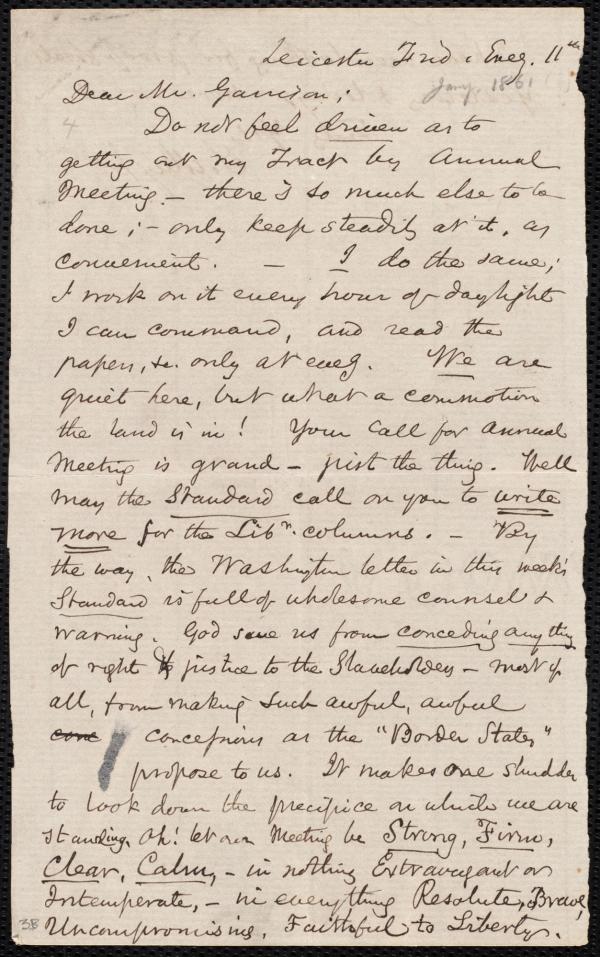 Leicester Frid. Eveg. 11th
Jany 1861
Dear Mr. Garrison;
4
Do not feel driven as to
getting out my Tract by Annual
Meeting. – there is so much else to be
done; – only keep steadily at it, as
convenient. – I do the same;
I work on it every hour of daylight
I can command, and read the
papers, &c. only at eveg. We are
quiet here, but what a commotion
the land is in! Your Call for Annual
Meeting is grand – just the thing. Well
may the Standard call on you to write
more for the Libr. columns. – By
the way, the Washington letter in this week's
Standard is full of wholesome counsel &
warning. God save us from conceding anything
of right & justice to the Slaveholders – most of
all, from making such awful, awful
conc concessions as the "Border States"
propose to us. It makes one shudder
to look down the precipice on which we are
standing. Oh! let our Meeting be Strong, Firm,
Clear, Calm, – in nothing Extravagant or
Intemperate, – in everything Resolute, Brave,
Uncompromising, Faithful to Liberty.
38